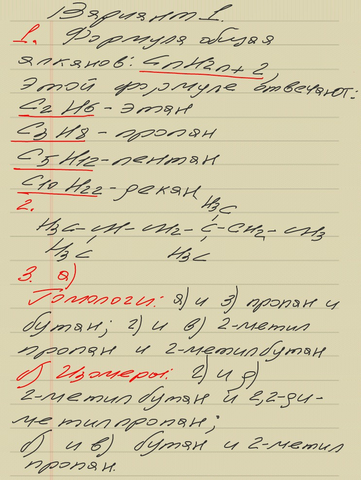 Вариант 1.
1. Формула общая
алканов: CnH2n+2,
этой формуле отвечают:
C2H6 - этан
C3H8 - пропан
C5H12 - пентан
C10H22 - декан
2. H3C
H3C-CH-CH2-C-CH2-CH3
H3C H3C
3. а)
Гомологи: а) и з) пропан и
бутан; г) и в) 2-метил
пропан и 2-метилбутан
б) Изомеры: г) и д)
2-метилбутан и 2,2-ди-
метилпропан;
б) и в) бутан и 2-метил
пропан.